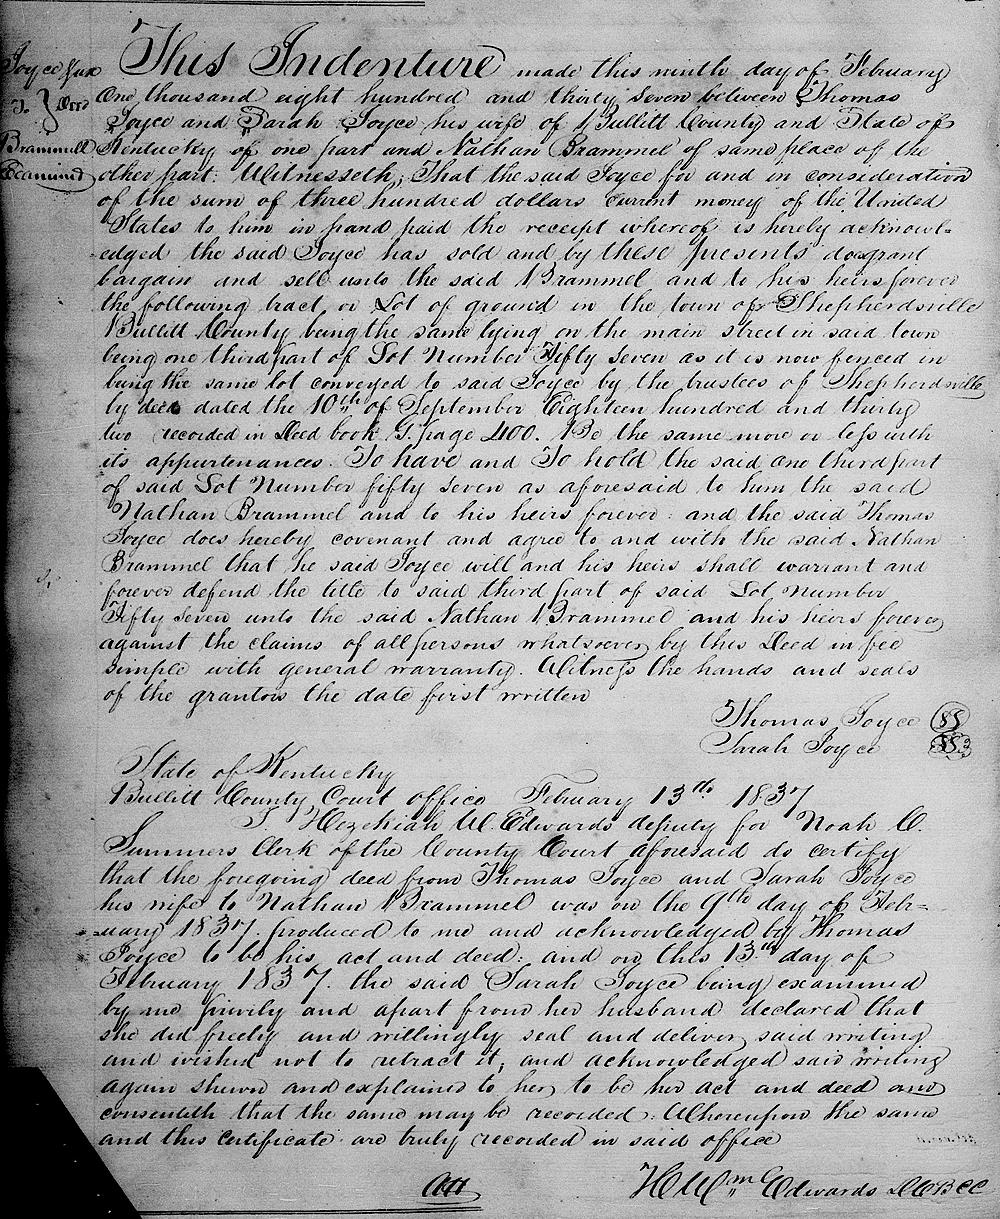 Joyce & ux
To } Deed
Brammell
Examined
This Indenture made this ninth day of February
One thousand eight hundred and thirty seven between Thomas
Joyce and Sarah Joyce his wife of Bullitt County and State of
Kentucky of one part and Nathan Brammel of same place of the
other part. Witnesseth, That the said Joyce for and in consideration
of the sum of three hundred dollars Current money of the United
States to him in hand paid the receipt whereof is hereby acknowl=
=edged the said Joyce has sold and by these presents does grant
bargain and sell unto the said Brammel and to his heirs forever
the following tract or Lot of ground in the town of Shepherdsville
Bullitt County being the same lying on the main street in said town
being one third part of Lot Number Fifty Seven as it is now fenced in
being the same lot conveyed to said Joyce by the trustees of Shepherdsville
by deed dated the 10th of September Eighteen hundred and thirty
two recorded in Deed book G. page 400. Be the same more or less with
its appurtenances. To have and To hold the said one third part
of said Lot Number fifty seven as aforesaid to him the said
Nathan Brammel and to his heirs forever: and the said Thomas
Joyce does hereby covenant and agree to and with the said Nathan
Brammel that he said Joyce will and his heirs shall warrant and
forever defend the title to said third part of said Lot number
Fifty Seven unto the said Nathan Brammel and his heirs forever
against the claims of all persons whatsoever by this Deed in fee
simple with general warranty. Witness the hands and seals
of the grantors the date first written
Thomas Joyce SS
Sarah Joyce SS
State of Kentucky
Bullitt County Court office February 13th 1837
I. Hezekiah W. Edwards deputy for Noah C.
Summers Clerk of the County Court aforesaid do certify
that the foregoing deed from Thomas Joyce and Sarah Joyce
his wife to Nathan Brammel was on the 9th day of Febr=
=uary 1837. produced to me and acknowledged by Thomas
Joyce to be his act and deed: and on this 13th day of
February 1837. the said Sarah Joyce being examined
by me privily and apart from her husband declared that
she did freely and willingly seal and deliver said writing
and wished not to retract it, and acknowledged said writing
again shewn and explained to her, to be her act and deed and
consenteth that the same may be recorded: Whereupon the same
and this certificate are truly recorded in said office
Att H Wm Edwards DCBCC